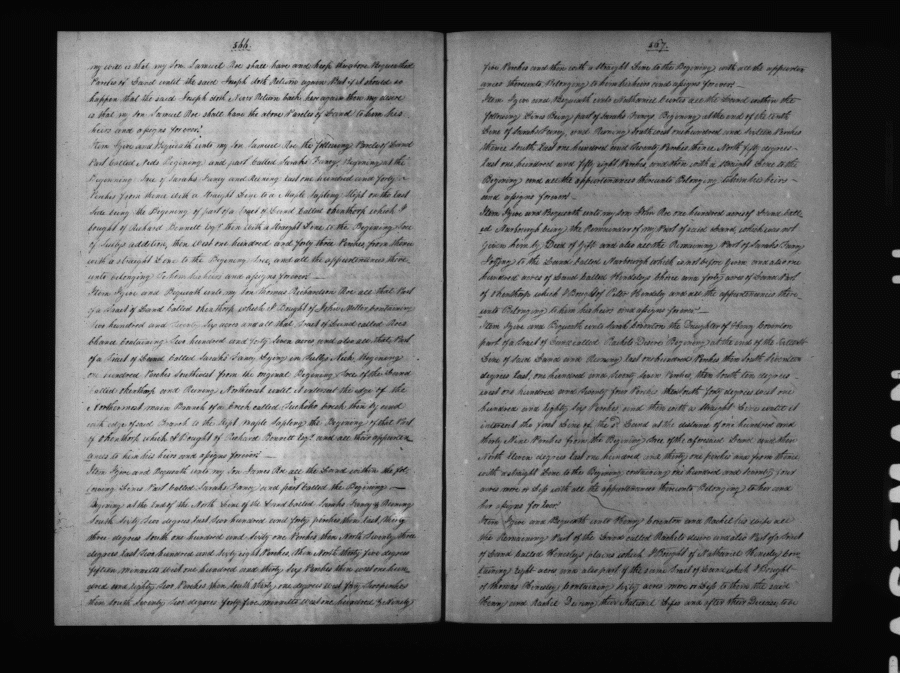 566.
my will is that my Son Samuel Roe shall have and keep the above Bequeathed
Parcles of Land until the said Joseph doth Return again But if it should so
happen that the said Joseph doth Never Return back here again then my desire
is that my Son Samuel Roe shall have the above Parcles of Land to him his
heirs and asigns for ever
Item I give and Bequeath unto my Son Samuel Roe the following Parcles of Land
Part Called Neds Begining and part Called Sarahs Fancy Begining at the
Beginning tree of Sarahs Fancy and Runing East one hundred and forty
Perches from thence with a Straight Line to a Maple Sapling Slept on the East
Side being the Begining of part of a tract of Land called which I
bought of Richard Bennett Esqr then with a Straight Line to the Begining tree
of addition, then West one hundred and forty three Perches from thence
with a Straight Line to the Begining tree, and all the appurtenances there
unto belonging to him his heirs and asigns for ever
Item I give and Bequeath unto my Son Thomas Richardson Roe all that Part
of a Tract of Land Called which I Bought of John Miller containing
two hundred and Six acres and all that Tract of Land called Roes
Chance Containing two hundred and forty Seven acres and also all that Part
of a Tract of Land Called Sarahs Fancy Lying in Neck Begining
one hundred Perches Southwest from the original Begining tree of the Land
Called and Runing Northwest until it intersect the edge of the
Northernmost main Branch of a Creek called Creek then by and
with edge of said Branch to the Slept Maple Sapling the Begining of that Part
of which I Bought of Richard Bennett Esqr and all their appurten
ances to him his heirs and asigns for ever
Item I give and Bequeath unto my Son James Roe all the Land within the fol
lowing Lines Part Called Sarahs Fancy and part Called the Begining
Begining at the End of the North Line of the Land Called Sarahs Fancy & Runing
South Sixty two degrees East two hundred and forty perches then East thirty
three degrees South one hundred and Sixty one Perches then North Seventy three
degrees East two hundred and Sixty eight Perches, then North thirty five degrees
fifteen Minnetts West one hundred and thirty Six Perches then West one hun
dred and Eighty two Perches then South thirty one degrees West fifty two perches
then South Seventy two degrees forty five minnetts West one hundred & Ninety
567.
five Perches and then with a Straight Line to the Begining with all the appurten
ances thereunto Belonging to him his heirs and asigns for ever
Item I give and Bequeath unto Nathaniel all the Land within the
following Lines Being part of Sarahs Fancy Begining at the end of the tenth
Line of Sarahs Fancy, and Runing South East one hundred and Sixteen Perches
thence South East one hundred and Seventy Perches thence North fifty degrees
East one hundred and fifty eight Perches and then with a Straight Line to the
Begining and all the appurtenances thereunto Belonging to him his heirs
and asigns for ever
Item I give and Bequeath unto my Son John Roe one hundred acres of Land Call
ed Narborough being the Remainder of my Part of said Land, which was not
Given him by Deed of Gift and also all the Remaining Part of Sarahs Fancy
to the Land Called Narborough which is not before given and also one
hundred acres of Land Called Hemsley and forty acres of Land Part
of which I Bought of Peter Hemsley and all the appurtenances there
unto Belonging to him his heirs and asigns for ever
Item I give and Bequeath unto Sarah Covinton the Daughter of Henry Covinton
part of a Tract of Land called Rachels Desire Begining at the end of the
Line of said Land and Runing East one hundred Perches then South Seventeen
degrees East, one hundred and Perches then South ten degrees
West one hundred and Seventy four Perches then South forty degrees West one
hundred and Eighty Six Perches and then with a Straight Line until it
intersect the first Line of the sd Land at the distance of one hundred and
thirty Nine Perches from the Begining tree of the aforesaid Land and then
North Eleven degrees East one hundred and thirty one perches and from thence
with a Straight Line to the Begining containing one hundred and Seventy four
acres more or Less with all the appurtenances thereunto Belonging to her and
her asigns for Ever
Item I give and Bequeath unto Henry Covinton and Rachel his wife all
the Remaining Part of the Land Called Rachels desire and also Part of a Tract
of Land Called Hemsleys plains which I Bought of Nathaniel Hensley Con
taining Eight acres and also part of the same Tract of Land which I Bought
of Thomas Hensley Containing Sixty acres more or Less to them the said
Henry and Rachel During their Natural Lifes and after their Decease to be